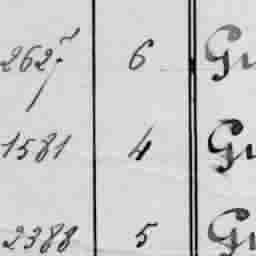 2627 6 Gu
1581 4 Gu
2388 5 Gu